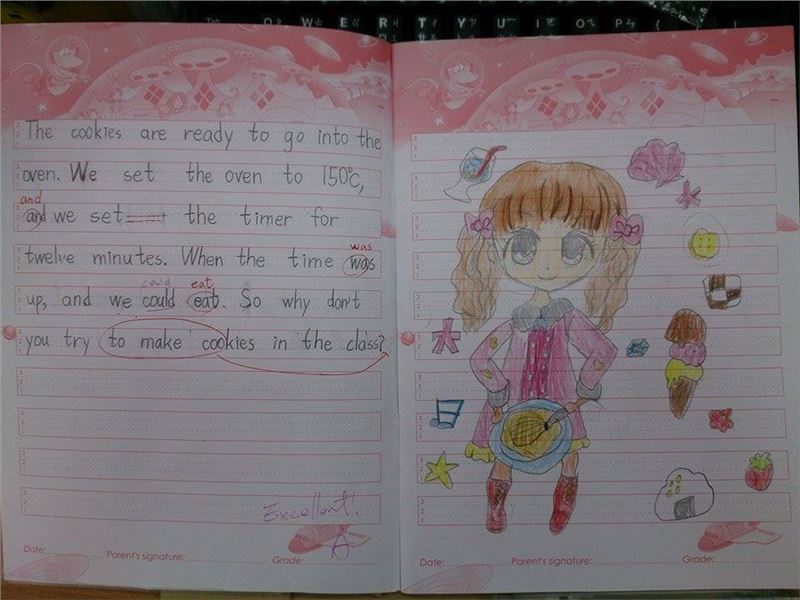 Tab Q W E R T Y U I O P
The cookies are ready to go into the
oven. We set the oven to 150°C,
and
and we set the timer for
was
twelve minutes. When the time was
could eat
up, and we could eat. So why don't
you try to make cookies in the class?
Excellent!
A
Date: Parent's signature: Grade:
Date: Parent's signature: Grade: